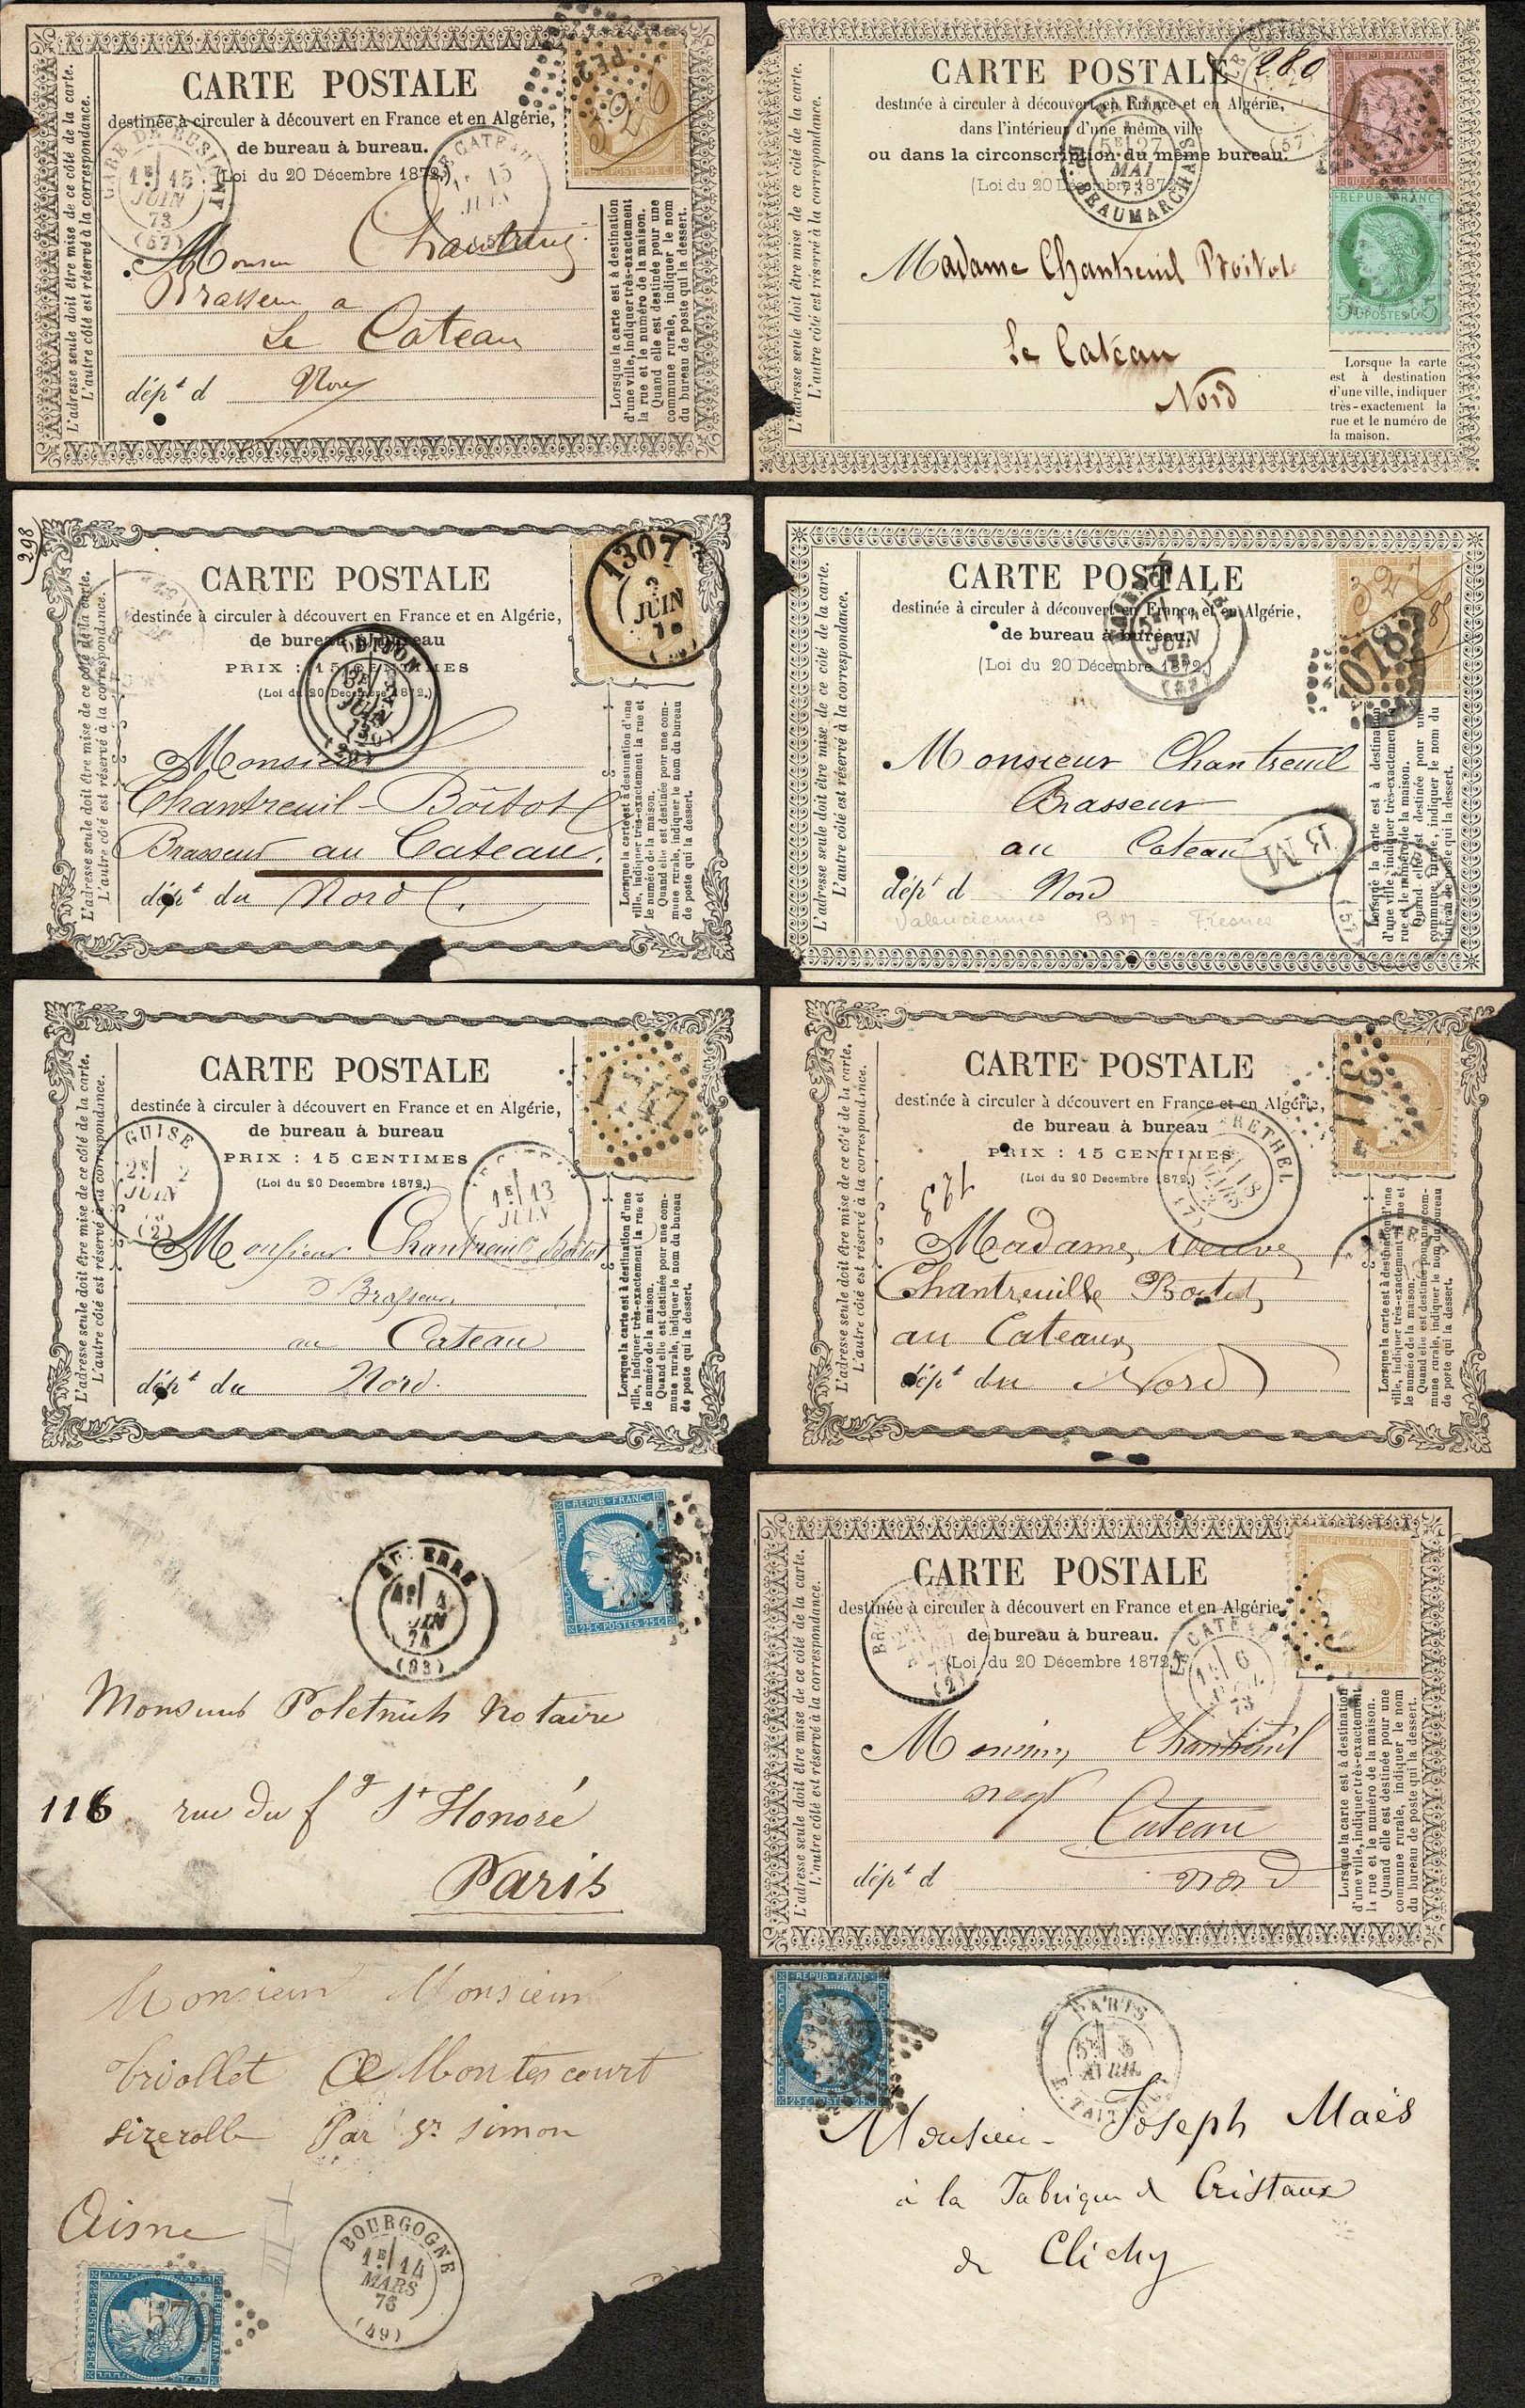 CARTE POSTALE
destinée à circuler à découvert en France et en Algérie,
de bureau à bureau.
(Loi du 20 Décembre 1872.)
L'adresse seule doit être mise de ce côté de la carte.
L'autre côté est réservé à la correspondance.
GARE DE BUSIGNY
1E 15
JUIN
73
(57)
LE CATEAU
15
JUIN
Monsieur
Brasseur a
Le Câteau
dépt d Nord
Lorsque la carte est à destination
d'une ville, indiquer très-exactement
la rue et le numéro de la maison.
Quand elle est destinée pour une
commune rurale, indiquer le nom
du bureau de poste qui la dessert.
CARTE POSTALE
280
destinée à circuler à découvert en France et en Algérie,
dans l'intérieur d'une même ville
ou dans la circonscription du même bureau.
(Loi du 20 Décembre 1872.)
L'adresse seule doit être mise de ce côté de la carte.
L'autre côté est réservé à la correspondance.
PARIS
5E 27
MAI
73
BEAUMARCHAIS
REPUB FRANC
10 C POSTES 10 C
REPUB FRANC
5 POSTES 5
Madame Chantreuil Boitot
Le Cateau
Nord
Lorsque la carte
est à destination
d'une ville, indiquer
très-exactement la
rue et le numéro de
la maison.
298
CARTE POSTALE
destinée à circuler à découvert en France et en Algérie,
de bureau à bureau
PRIX : 15 CENTIMES
(Loi du 20 Decembre 1872.)
L'adresse seule doit être mise de ce côté de la carte.
L'autre côté est réservé à la correspondance.
1307
2
JUIN
Monsieur
Chantreuil-Boîtot
Brasseur au Cateau.
dépt du Nord
Lorsque la carte est à destination d'une
ville, indiquer très-exactement la rue et
le numéro de la maison.
Quand elle est destinée pour une com-
mune rurale, indiquer le nom du bureau
de poste qui la dessert.
CARTE POSTALE
destinée à circuler à découvert en France et en Algérie,
de bureau à bureau.
(Loi du 20 Décembre 1872.)
L'adresse seule doit être mise de ce côté de la carte.
L'autre côté est réservé à la correspondance.
JUIN
078
Monsieur Chantreuil
Brasseur
au Cateau
BM
dépt d Nord
Valenciennes BM = Fresnes
Lorsque la carte est à destination
d'une ville, indiquer très-exactement la
rue et le numéro de la maison.
Quand elle est destinée pour une
commune rurale, indiquer le nom du
bureau de poste qui la dessert.
CARTE POSTALE
destinée à circuler à découvert en France et en Algérie,
de bureau à bureau
PRIX : 15 CENTIMES
(Loi du 20 Decembre 1872.)
L'adresse seule doit être mise de ce côté de la carte.
L'autre côté est réservé à la correspondance.
1747
GUISE
2E 2
JUIN
(2)
1E 13
JUIN
Monsieur Chantreuil Boitot
Brasseur
au Cateau
dépt du Nord.
Lorsque la carte est à destination d'une
ville, indiquer très-exactement la rue et
le numéro de la maison.
Quand elle est destinée pour une com-
mune rurale, indiquer le nom du bureau
de poste qui la dessert.
CARTE POSTALE
destinée à circuler à découvert en France et en Algérie,
de bureau à bureau
PRIX : 15 CENTIMES
(Loi du 20 Decembre 1872.)
L'adresse seule doit être mise de ce côté de la carte.
L'autre côté est réservé à la correspondance.
RETHEL
18
MARS
(7)
123
Madame veuve
Chantreuille Boitot
au Cateaux
dépt du Nord
Lorsque la carte est à destination d'une
ville, indiquer très-exactement la rue et
le numéro de la maison.
Quand elle est destinée pour une com-
mune rurale, indiquer le nom du bureau
de poste qui la dessert.
REPUB FRANC
25 C POSTES 25 C
4
JUIN
74
Monsieur Poletnich Notaire
116 rue du fg St Honoré
Paris
CARTE POSTALE
destinée à circuler à découvert en France et en Algérie,
de bureau à bureau.
(Loi du 20 Décembre 1872.)
L'adresse seule doit être mise de ce côté de la carte.
L'autre côté est réservé à la correspondance.
LE CATEAU
1E 6
73
Chantreuil
negt
Cateau
dépt d nord
Lorsque la carte est à destination
d'une ville, indiquer très-exactement
la rue et le numéro de la maison.
Quand elle est destinée pour une
commune rurale, indiquer le nom
du bureau de poste qui la dessert.
Monsieur Monsieur
Triollet A Montescourt
Lizerolle Par St Simon
Aisne
BOURGOGNE
1E 14
MARS
76
(49)
REPUB FRANC
25 C POSTES 25 C
REPUB FRANC
25 C POSTES 25 C
PARIS
5E 5
AVRIL
R. TAITBOUT
Monsieur Joseph Maës
à la Fabrique de Cristaux
de Clichy